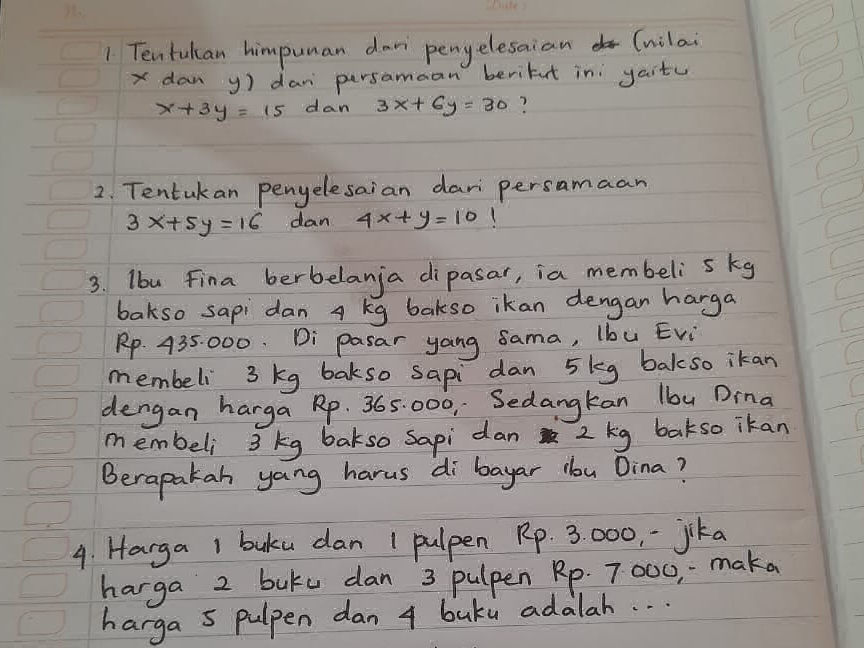 1. Tentukan himpunan dari penyelesaian (nilai
x dan y) dari persamaan berikut ini yaitu
x+3y = 15 dan 3x+6y = 30 ?
2. Tentukan penyelesaian dari persamaan
3x+5y = 16 dan 4x+y = 10 !
3. Ibu Fina berbelanja di pasar, ia membeli 5 kg
bakso sapi dan 4 kg bakso ikan dengan harga
Rp. 435.000. Di pasar yang sama, Ibu Evi
membeli 3 kg bakso sapi dan 5 kg bakso ikan
dengan harga Rp. 365.000,- Sedangkan Ibu Dina
membeli 3 kg bakso sapi dan 2 kg bakso ikan
Berapakah yang harus di bayar ibu Dina ?
4. Harga 1 buku dan 1 pulpen Rp. 3.000,- jika
harga 2 buku dan 3 pulpen Rp. 7.000,- maka
harga 5 pulpen dan 4 buku adalah ...